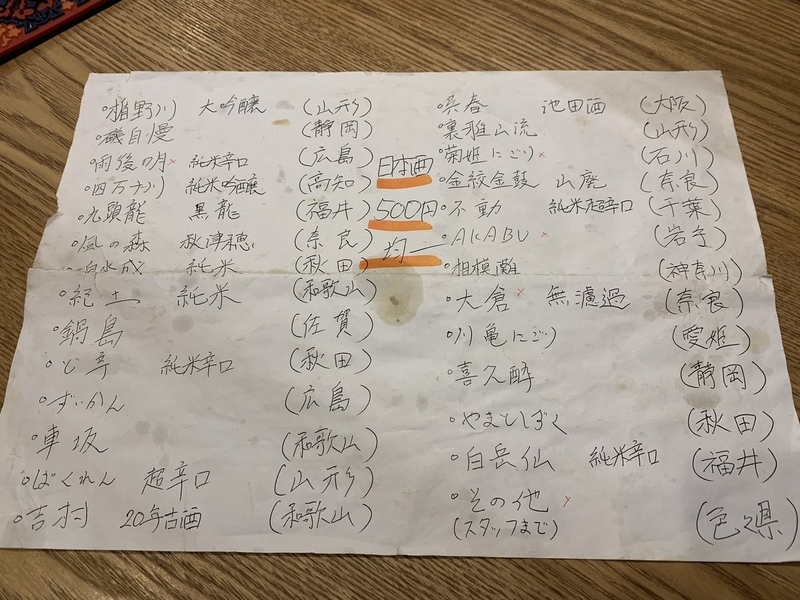 °楯野川 大吟醸 (山形)
°磯自慢 (静岡)
°雨後の月× 純米辛口 (広島)
°四万十川 純米吟醸 (高知)
°九頭龍 黒龍 (福井)
°風の森 秋津穂 (奈良)
°一白水成 純米 (秋田)
°紀土 純米 (和歌山)
°鍋島 (佐賀)
°ど辛 純米辛口 (秋田)
°ずいかん (広島)
°車坂 (和歌山)
°ばくれん 超辛口 (山形)
°吉村 20年古酒 (和歌山)
日本酒
500円
均一
°呉春 池田酒 (大阪)
°裏雅山流 (山形)
°菊姫にごり× (石川)
°金紋金鼓 山廃 (奈良)
°不動 純米超辛口 (千葉)
°AKABU × (岩手)
°相模灘 (神奈川)
°大倉× 無濾過 (奈良)
°川亀にごり (愛媛)
°喜久酔 (静岡)
°やまとしずく (秋田)
°白岳仙 純米辛口 (福井)
°その他 ×
(スタッフまで) (色々県)